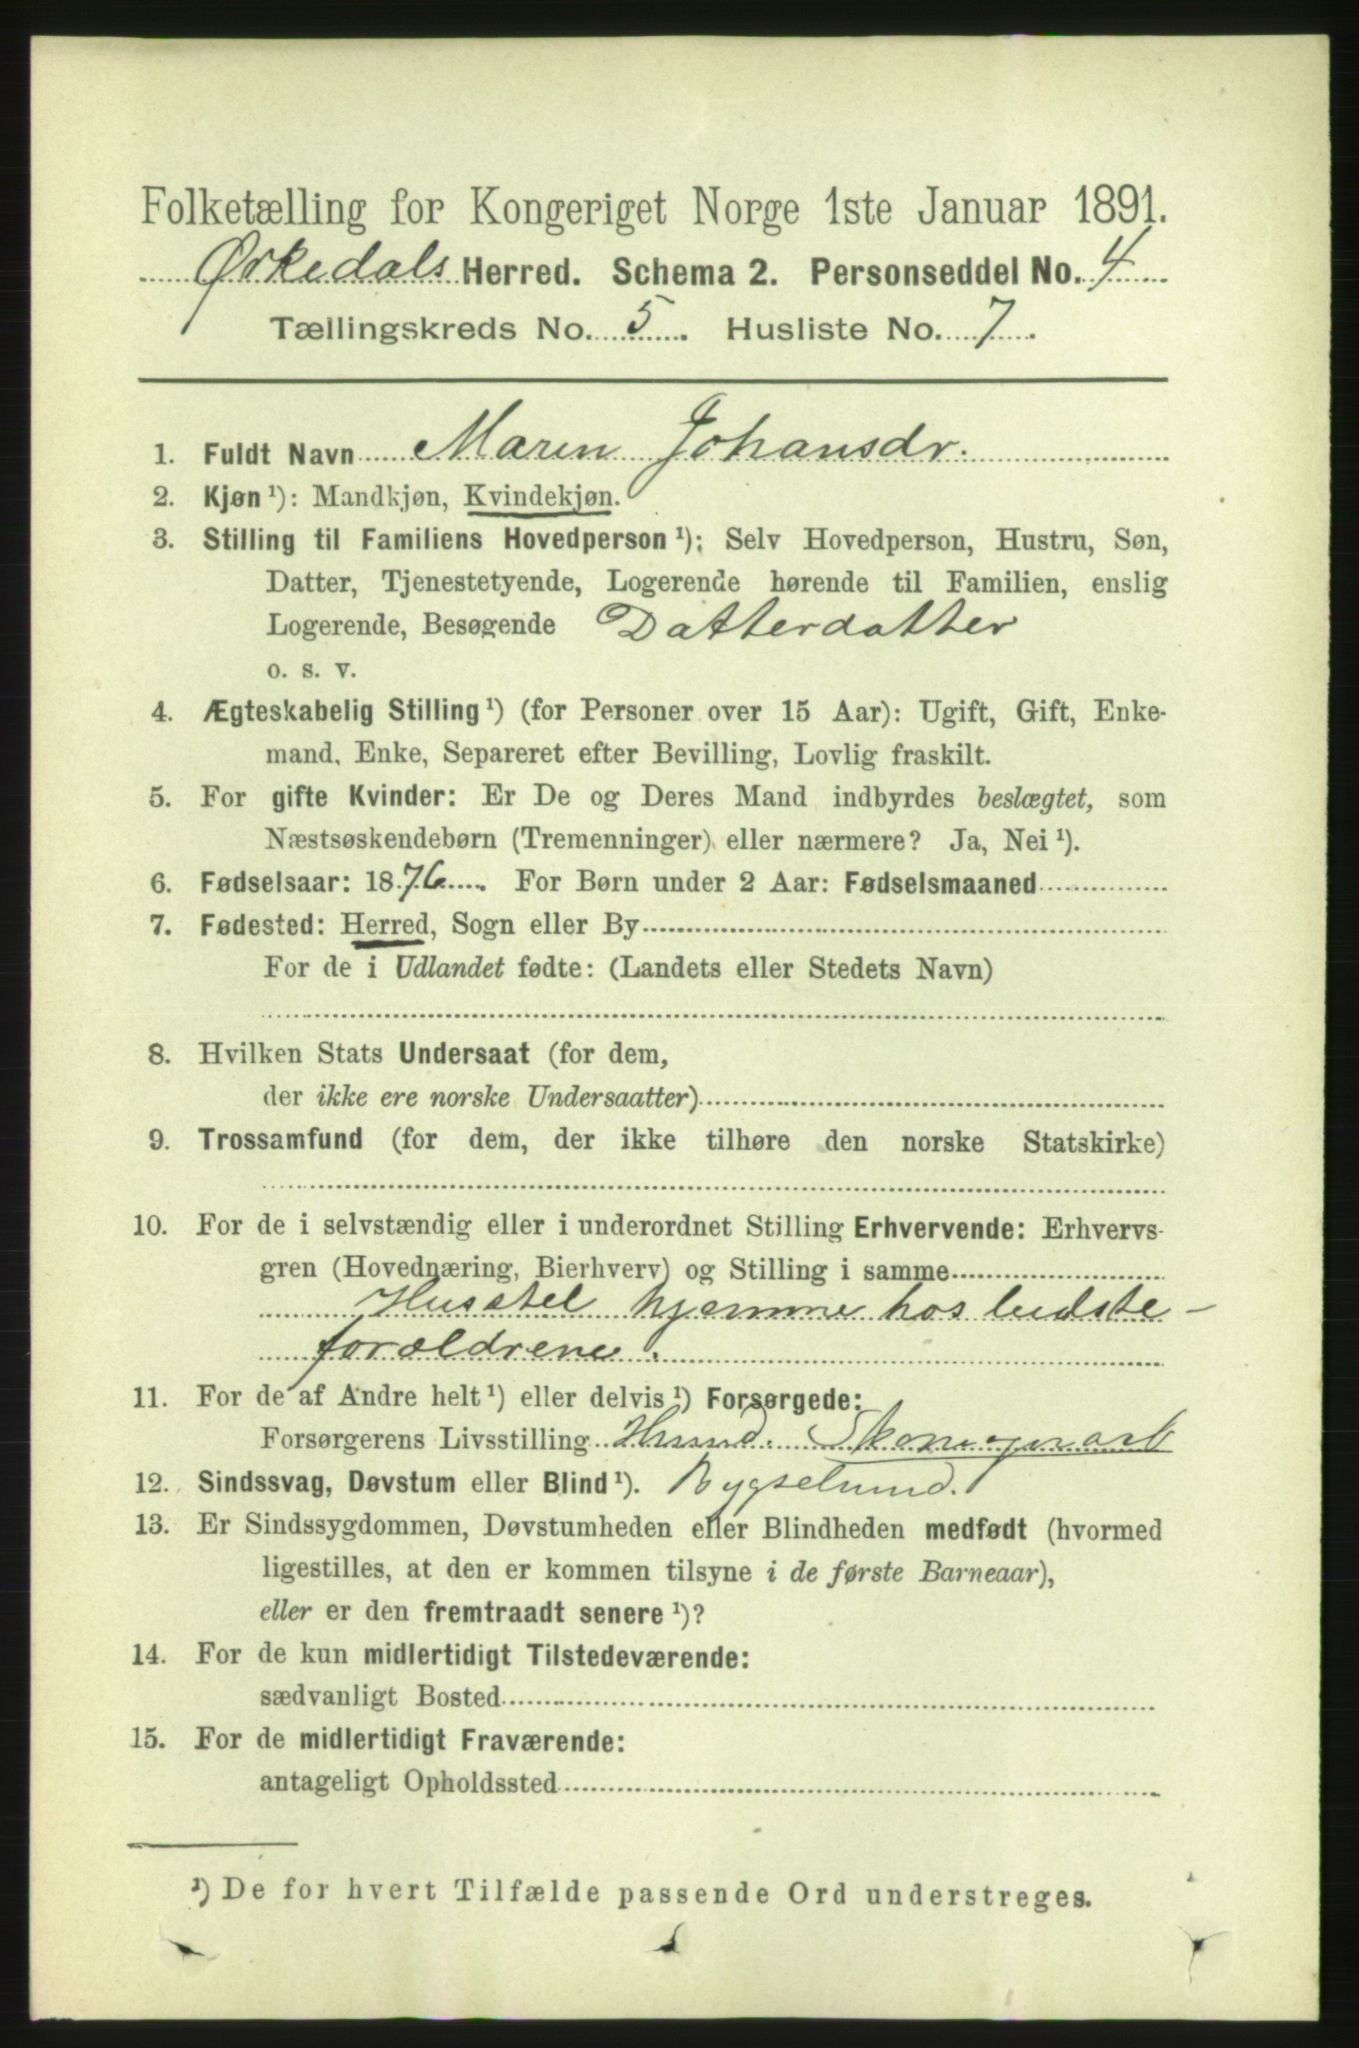 Folketælling for Kongeriget Norge 1ste Januar 1891.
Ørkedals Herred. Schema 2. Personseddel No. 4
Tællingskreds No. 5. Husliste No. 7.
1. Fuldt Navn Maren Johansdr.
2. Kjøn ¹): Mandkjøn, Kvindekjøn.
3. Stilling til Familiens Hovedperson ¹): Selv Hovedperson, Hustru, Søn,
Datter, Tjenestetyende, Logerende hørende til Familien, enslig
Logerende, Besøgende Datterdatter
o. s. v.
4. Ægteskabelig Stilling ¹) (for Personer over 15 Aar): Ugift, Gift, Enke-
mand, Enke, Separeret efter Bevilling, Lovlig fraskilt.
5. For gifte Kvinder: Er De og Deres Mand indbyrdes beslægtet, som
Næstsøskendebørn (Tremenninger) eller nærmere? Ja, Nei ¹).
6. Fødselsaar: 1876. For Børn under 2 Aar: Fødselsmaaned
7. Fødested: Herred, Sogn eller By
For de i Udlandet fødte: (Landets eller Stedets Navn)
8. Hvilken Stats Undersaat (for dem,
der ikke ere norske Undersaatter)
9. Trossamfund (for dem, der ikke tilhøre den norske Statskirke)
10. For de i selvstændig eller i underordnet Stilling Erhvervende: Erhvervs-
gren (Hovednæring, Bierhverv) og Stilling i samme
Husstel hjemme hos bedste-
forældrene.
11. For de af Andre helt ¹) eller delvis ¹) Forsørgede:
Forsørgerens Livsstilling Husmd.
12. Sindssvag, Døvstum eller Blind ¹).
13. Er Sindssygdommen, Døvstumheden eller Blindheden medfødt (hvormed
ligestilles, at den er kommen tilsyne i de første Barneaar),
eller er den fremtraadt senere ¹)?
14. For de kun midlertidigt Tilstedeværende:
sædvanligt Bosted
15. For de midlertidigt Fraværende:
antageligt Opholdssted
¹) De for hvert Tilfælde passende Ord understreges.